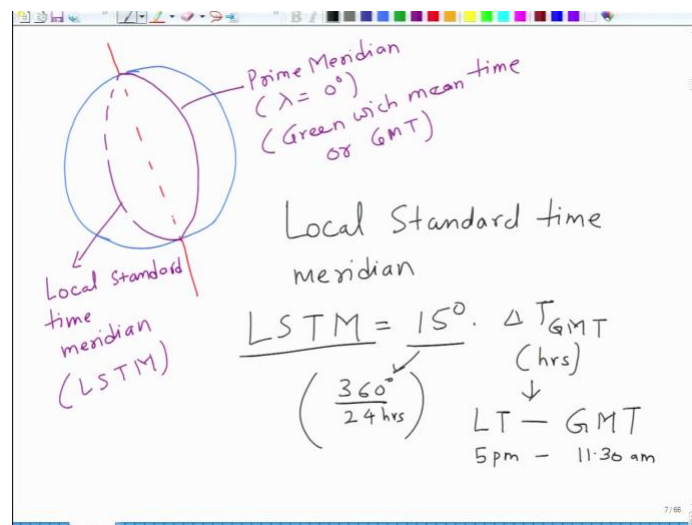 Prime Meridian
(λ = 0°)
(Green wich mean time
or GMT)
Local Standard time
meridian
Local Standard
time
meridian
(LSTM)
LSTM = 15°. Δ T_GMT
(hrs)
(360°/24 hrs)
LT - GMT
5 pm - 11.30 am
7/66